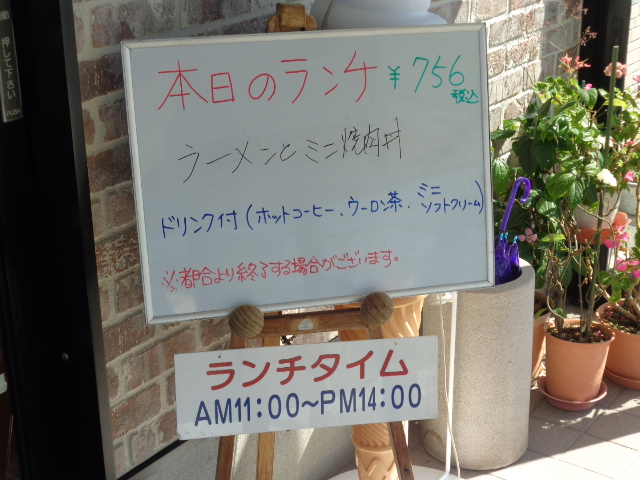 押して下さい
本日のランチ ¥756
税込
ラーメンとミニ焼肉丼
ドリンク付(ホットコーヒー、ウーロン茶、ミニソフトクリーム)
※都合より終了する場合がございます。
ランチタイム
AM11:00～PM14:00